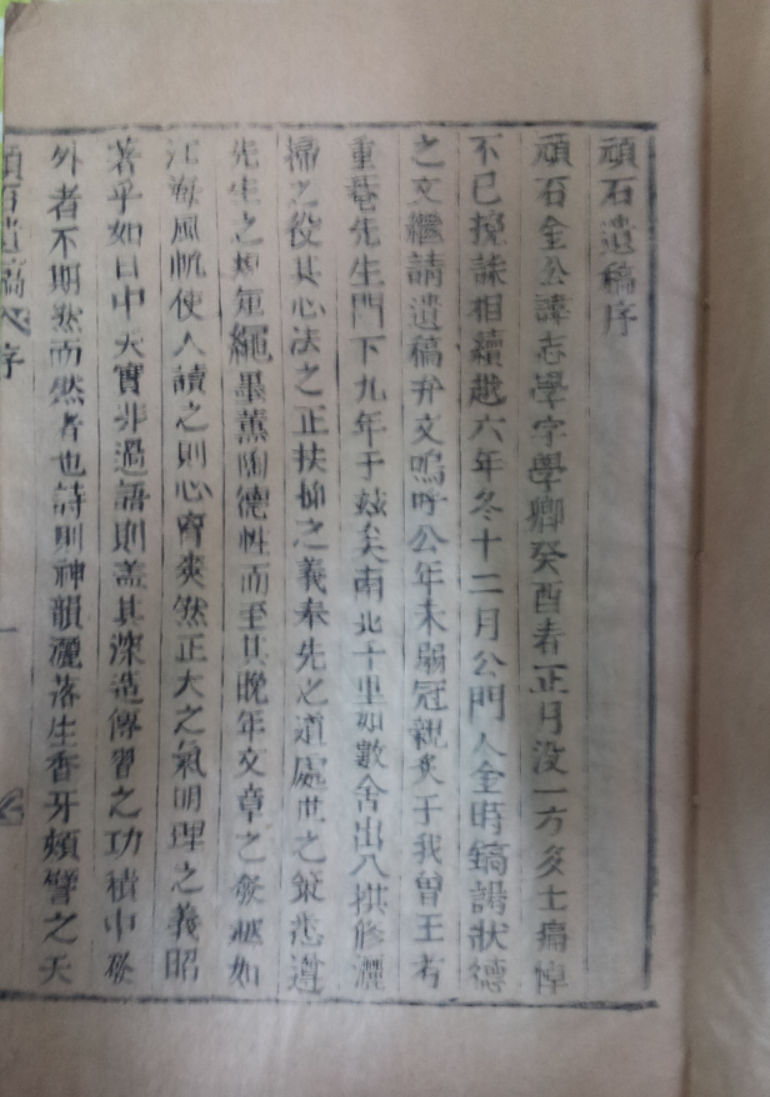 頑石遺稿序
頑石金公諱志學字學卿癸酉春正月沒一方多士痛悼
不已挽誄相續越六年冬十二月公門人金時鎬謁狀德
之文繼請遺稿弁文嗚呼公年未弱冠親炙于我曾王考
重菴先生門下九年于玆矣南北千里如數舍出入拱修灑
掃之役其心法之正扶抑之義奉先之道處世之策悉遵
先生之規矩繩墨薰陶德性而至其晩年文章之發越如
江海風帆使人讀之則心胷爽然正大之氣明理之義昭
著乎如日中天實非過語則盖其深造傳習之功積中發
外者不期然而然者也詩則神韻灑落生香牙頰譬之天
頑石遺稿 序 一